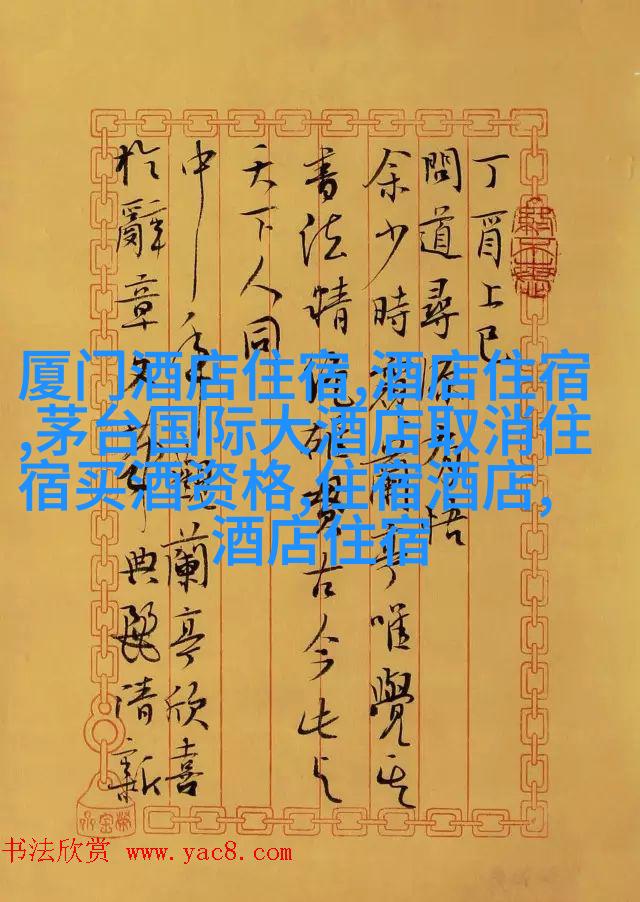 丁酉上巳
問道尋悟
余少時習蘭亭唯覺其
書法精絕古今此與
天下人同
中年蘭亭欣喜
於辭章文典麗清新
厦门酒店住宿,酒店住宿
,茅台国际大酒店取消住
宿买酒资格,住宿酒店,
酒店住宿
书法欣赏 www.yac8.com